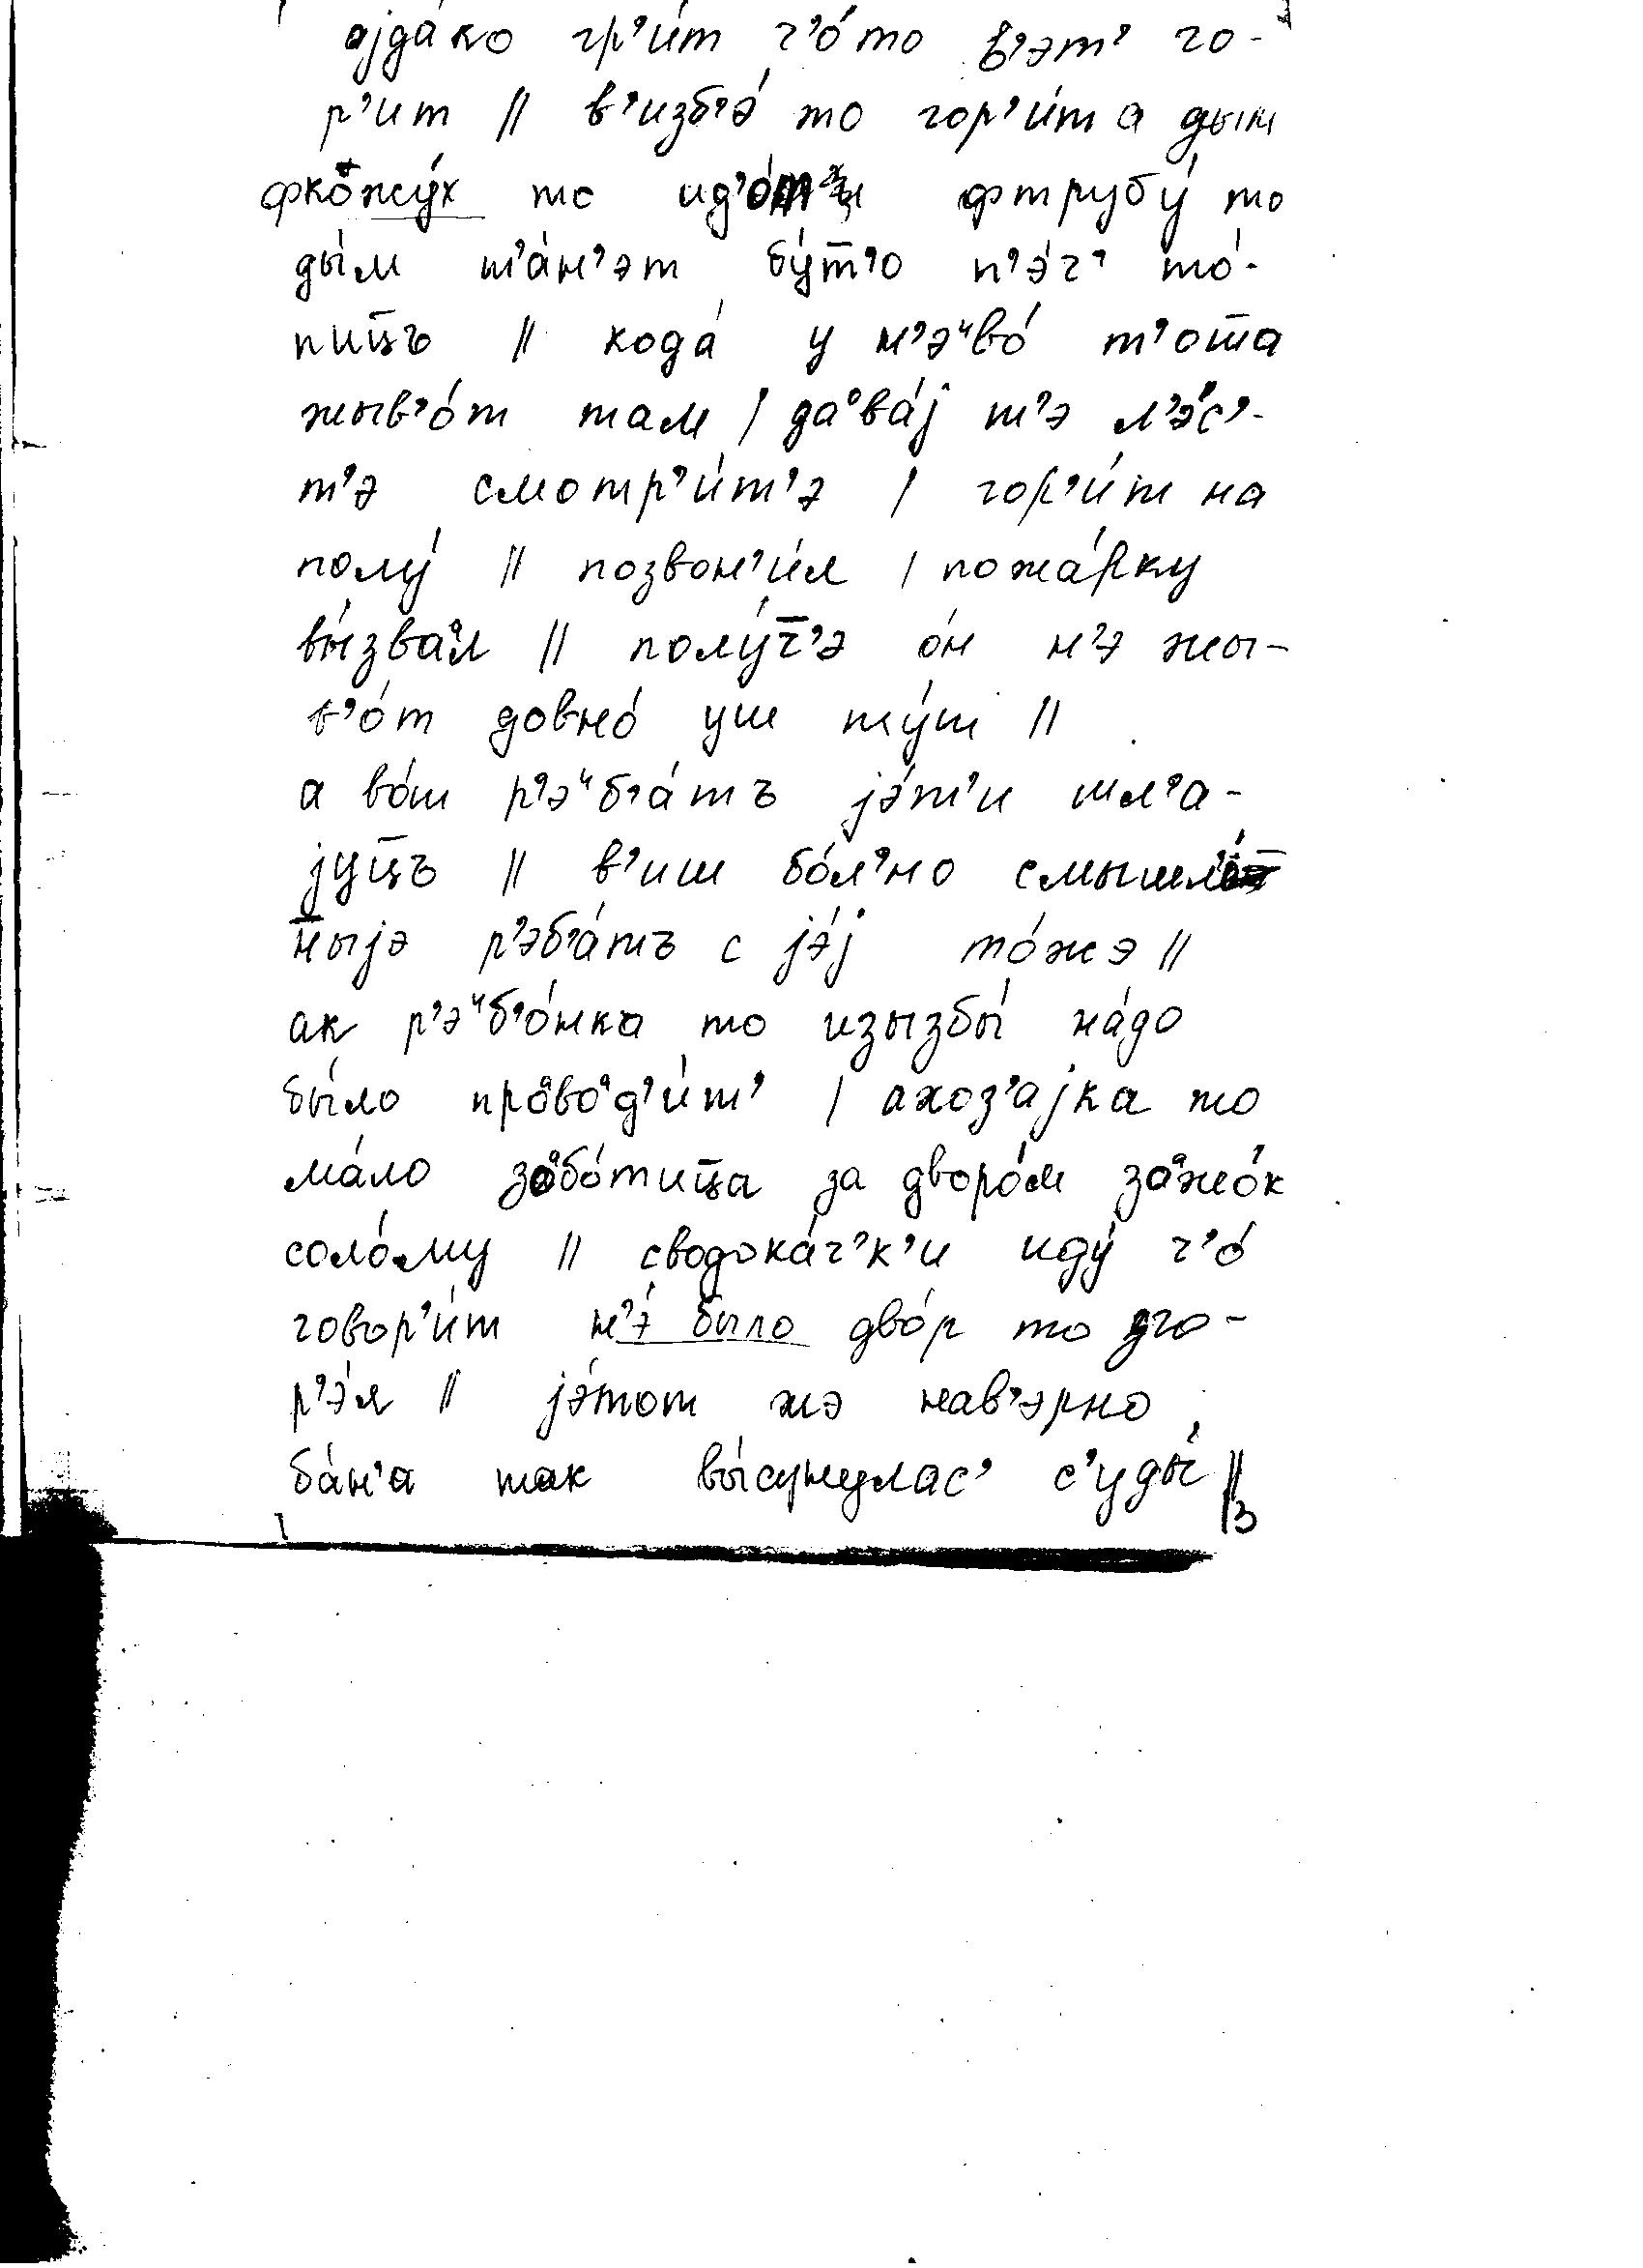 ајда́ко гр’и́т ч’о́то в’эт’ го-
р’ит || в’избэ́ то гор’и́т а дым
фкожу́х то ид’о́т фтрубу́ то
ды́м т’а́н’эт бу́т̄’о п’э́ч’ то́-
пиц̄ъ || кода́ у н’эᶦво́ т’от̄а
жыв’о́т там | даᵒва́ј т’э л’э́с’-
т’э смотр’и́т’э | гор’и́т на
полу́ || позвон’и́л | пожа́рку
вы́зваᵒл || полу́ч̄’э о́н н’э жы-
в’о́т довно́ уш ту́т ||
а во́т р’эᶦб’а́тъ јэ́т’и шл’а-
јуц̄ъ || в’иш бо́л’но смышл’о́н̄
н̄ыјэ р’эб’а́тъ с јэ́ј то́жэ ||
ак р’эᶦб’о́нка то изызбы́ на́до
бы́ло проᵃвоᵃд’и́т’ | ахоз’ајка то
ма́ло заᵒбо́тиц̄а за дворо́м заᵒжо́к
соло́му || сводока́ч’к’и иду́ ч’о́
говор’и́т н’э́ было дво́р то зго-
р’э́л || јэ́тот жэ нав’эрно
ба́н’а так вы́сунулас’ с’уды́ ||